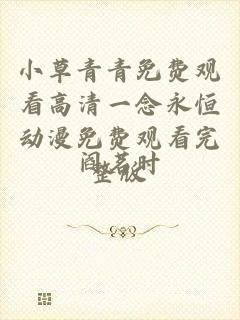 小草青青免费观
看高清一念永恒
动漫免费观看完
整版
阎茗时